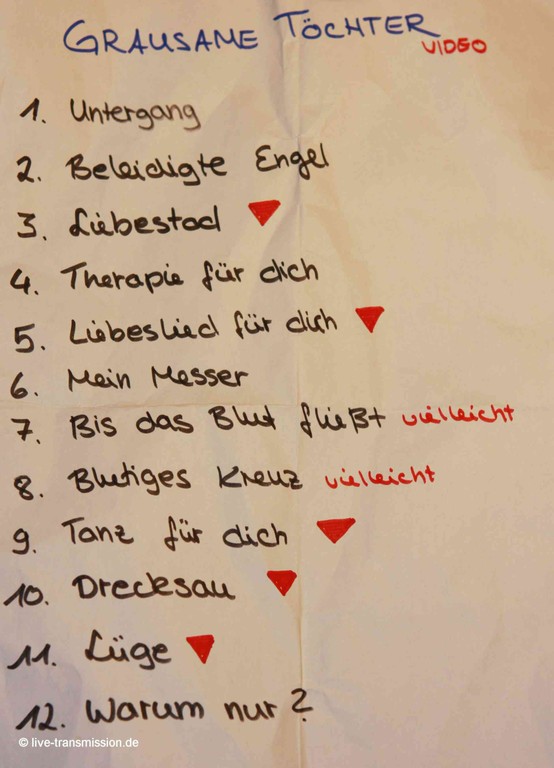 GRAUSAME TÖCHTER
VIDEO
1. Untergang
2. Beleidigte Engel
3. Liebestod
4. Therapie für dich
5. Liebeslied für dich
6. Mein Messer
7. Bis das Blut fließt vielleicht
8. Blutiges Kreuz vielleicht
9. Tanz für dich
10. Drecksau
11. Lüge
12. Warum nur?
© live-transmission.de